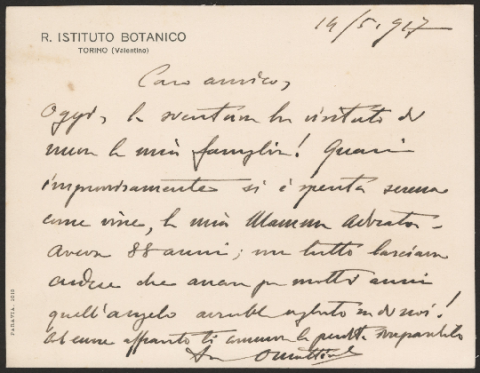 R. ISTITUTO BOTANICO
TORINO (Valentino)
14/5.917
Caro amico,
Oggi, la sventura ha visitato di
nuovo la mia famiglia! Quasi
improvvisamente si è spenta serena
come visse, la mia Mamma adorata.
Aveva 88 anni; ma tutto lasciava
credere che ancora per molti anni
quell'angelo avrebbe vegliato su di noi!
Col cuore affranto ti annuncio la perdita irreparabile
PARAVIA, 2515